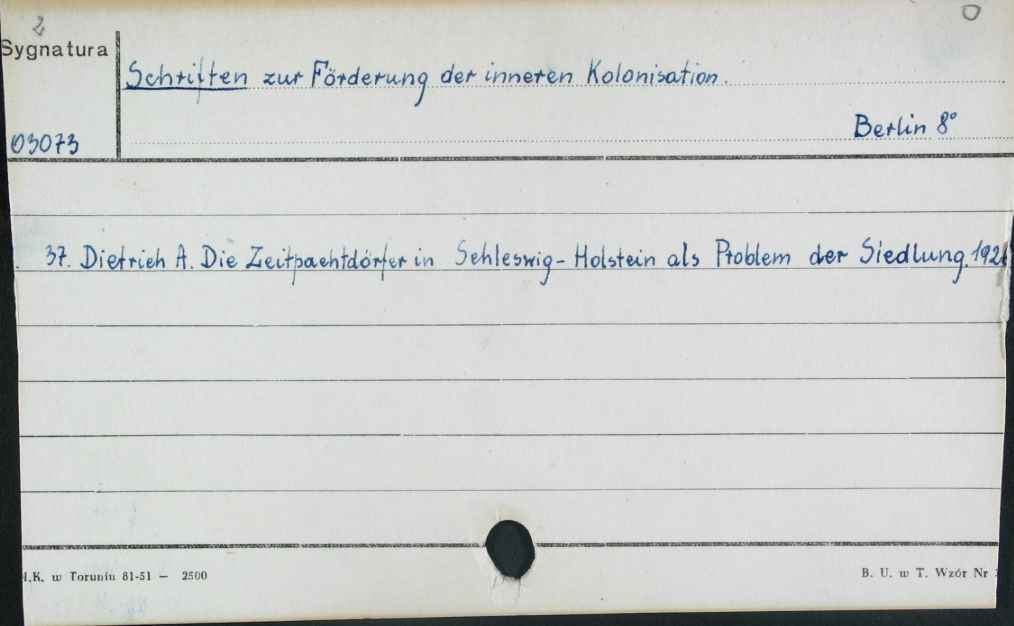 2
Sygnatura
Schriften zur Förderung der inneren Kolonisation.
03073
Berlin 8°
37. Dietrich A. Die Zeitpachtdörfer in Schleswig-Holstein als Problem der Siedlung.
.K. w Toruniu 81-51 — 2500
B. U. w T. Wzór Nr